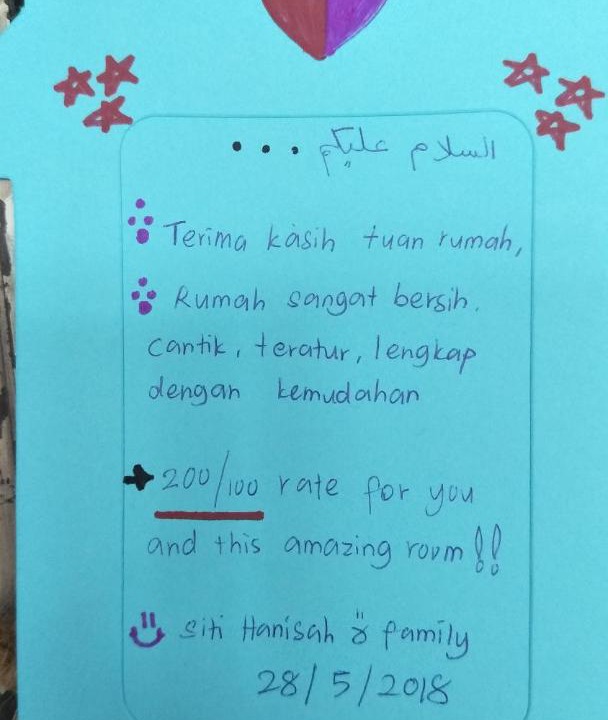 السلام عليكم ...
Terima kasih tuan rumah,
Rumah sangat bersih.
cantik, teratur, lengkap
dengan kemudahan
200/100 rate for you
and this amazing room!!
Siti Hanisah & family
28/5/2018